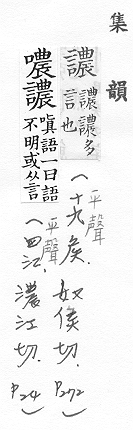 集韻
譨 譨譨多言也
(平聲十九侯.奴侯切.P272)
噥譨 嗔語一曰語不明或从言
(平聲四江.濃江切.P24)